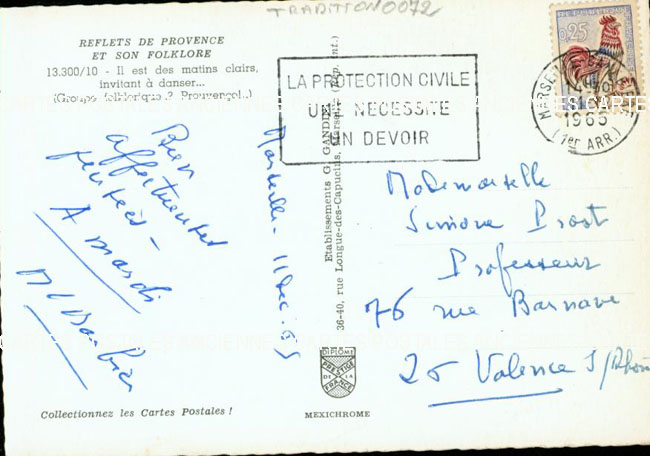 TRADITION0072
REFLETS DE PROVENCE
ET SON FOLKLORE
13.300/10 - Il est des matins clairs,
invitant à danser...
(Groupe folklorique "Prouvençal")
LA PROTECTION CIVILE
UNE NECESSITE
UN DEVOIR
0,25
MARSEILLE
1965
(1er ARR.)
Marseille - 11 Dec. 65
Bien
affectueuses
pensées -
A mardi
M Barbier
Etablissements G. GANDINI
36-40, rue Longue-des-Capucins, Marseille (Rep. Inf.)
Mademoiselle
Simone Prost
Professeur
76 rue Barnave
26 Valence s/Rhône
DIPLOME
PRESTIGE
DE LA
FRANCE
MEXICHROME
Collectionnez les Cartes Postales !